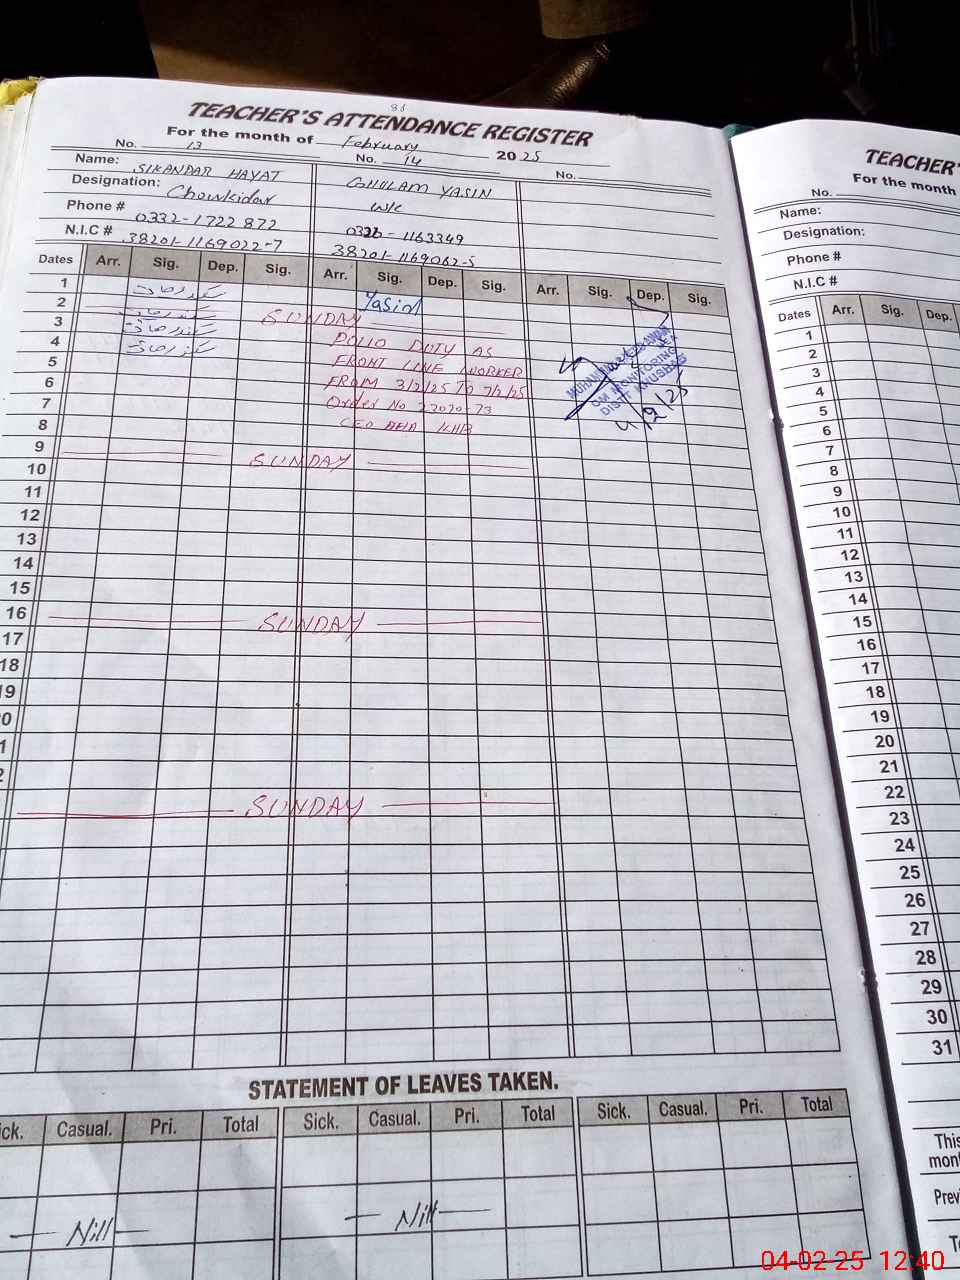 TEACHER'S ATTENDANCE REGISTER
For the month of February 2025
No. 13 No. 14 No.
Name: SIKANDAR HAYAT GHULAM YASIN
Designation: Chowkidar W/C
Phone # 0332-1722872 0326-1163349
N.I.C # 38201-1169022-7 38201-1169062-5
Dates Arr. Sig. Dep. Sig. Arr. Sig. Dep. Sig. Arr. Sig. Dep. Sig.
1 Yasin
2 SUNDAY
3 POLIO DUTY AS
4 FRONT LINE WORKER
5 FROM 3/2/25 TO 7/2/25
6 Order No 22020-73
7 CEO DEHA KHB
8
9 SUNDAY
10
11
12
13
14
15
16 SUNDAY
17
18
19
SUNDAY
DISTT KHUSHAB
4/2/25
STATEMENT OF LEAVES TAKEN.
ick. Casual. Pri. Total Sick. Casual. Pri. Total Sick. Casual. Pri. Total
Nill Nill
TEACHER'
For the month
No.
Name:
Designation:
Phone #
N.I.C #
Dates Arr. Sig. Dep.
1
2
3
4
5
6
7
8
9
10
11
12
13
14
15
16
17
18
19
20
21
22
23
24
25
26
27
28
29
30
31
This
mont
Previ
To
04-02-25 12:40